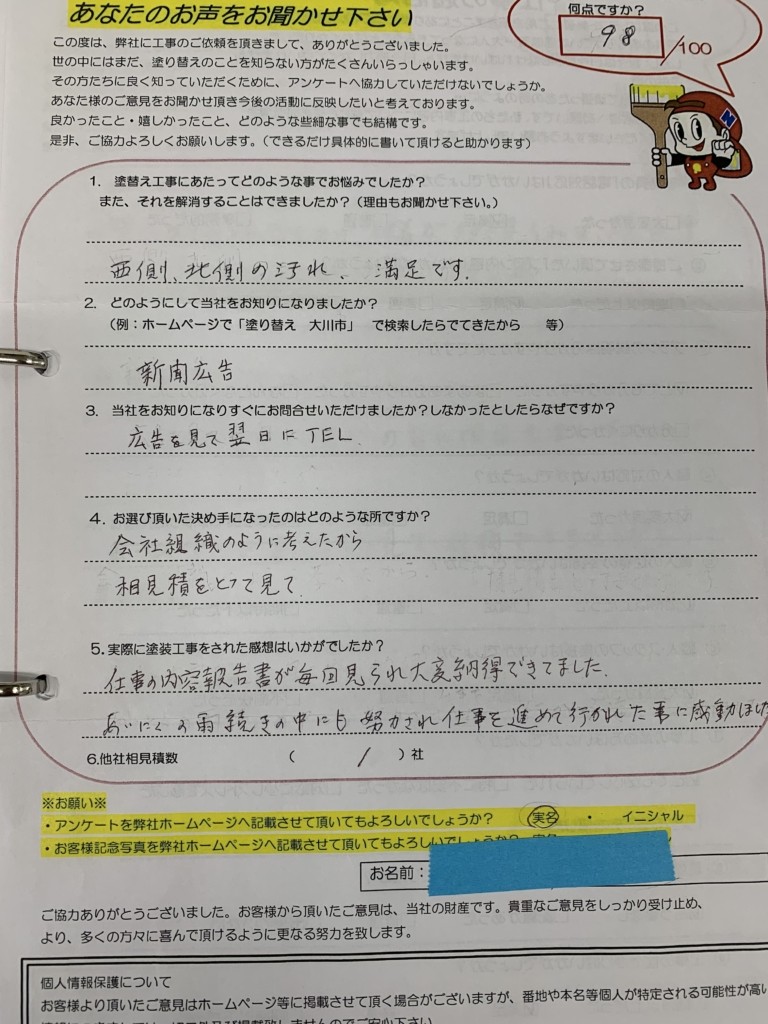 あなたのお声をお聞かせ下さい
何点ですか?
98
/100
この度は、弊社に工事のご依頼を頂きまして、ありがとうございました。
世の中にはまだ、塗り替えのことを知らない方がたくさんいらっしゃいます。
その方たちに良く知っていただくために、アンケートへ協力していただけないでしょうか。
あなた様のご意見をお聞かせ頂き今後の活動に反映したいと考えております。
良かったこと・嬉しかったこと、どのような些細な事でも結構です。
是非、ご協力よろしくお願いします。(できるだけ具体的に書いて頂けると助かります)
N
1. 塗替え工事にあたってどのような事でお悩みでしたか?
また、それを解消することはできましたか?(理由もお聞かせ下さい。)
西側、北側の汚れ、 満足です。
2. どのようにして当社をお知りになりましたか?
(例:ホームページで「塗り替え 大川市」 で検索したらでてきたから 等)
新聞広告
3. 当社をお知りになりすぐにお問合せいただけましたか?しなかったとしたらなぜですか?
広告を見て翌日にTEL.
4. お選び頂いた決め手になったのはどのような所ですか?
会社組織のように考えたから
相見積をとって見て
5.実際に塗装工事をされた感想はいかがでしたか?
仕事の内容報告書が毎回見られ大変納得できてました.
あいにくの雨続きの中にも 努力され仕事を進めて行かれた事に感動
6.他社相見積数 ( / )社
※お願い※
・アンケートを弊社ホームページへ記載させて頂いてもよろしいでしょうか? 実名 ・ イニシャル
・お客様記念写真を弊社ホームページへ記載させて頂いてもよろしいでしょうか?
お名前:
ご協力ありがとうございました。お客様から頂いたご意見は、当社の財産です。貴重なご意見をしっかり受け止め、
より、多くの方々に喜んで頂けるように更なる努力を致します。
個人情報保護について
お客様より頂いたご意見はホームページ等に掲載させて頂く場合がございますが、番地や本名等個人が特定される可能性が高い